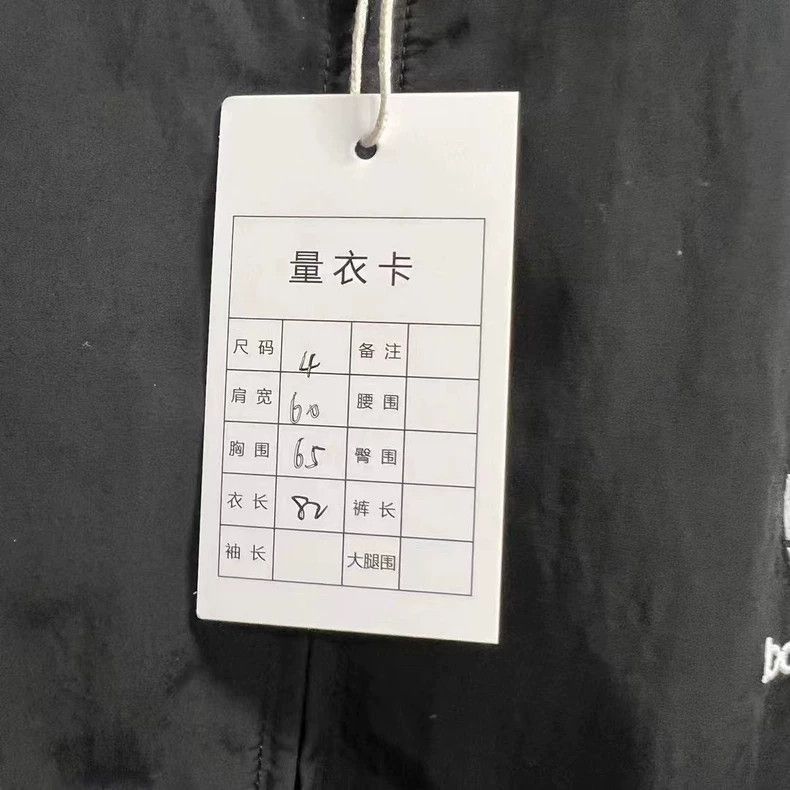 量衣卡
尺码 4 备注
肩宽 60 腰围
胸围 65 臀围
衣长 82 裤长
袖长 大腿围